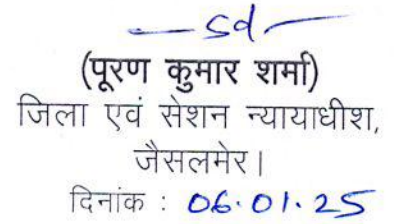 Sd
(पूरण कुमार शर्मा)
जिला एवं सेशन न्यायाधीश,
जैसलमेर।
दिनांक : 06.01.25